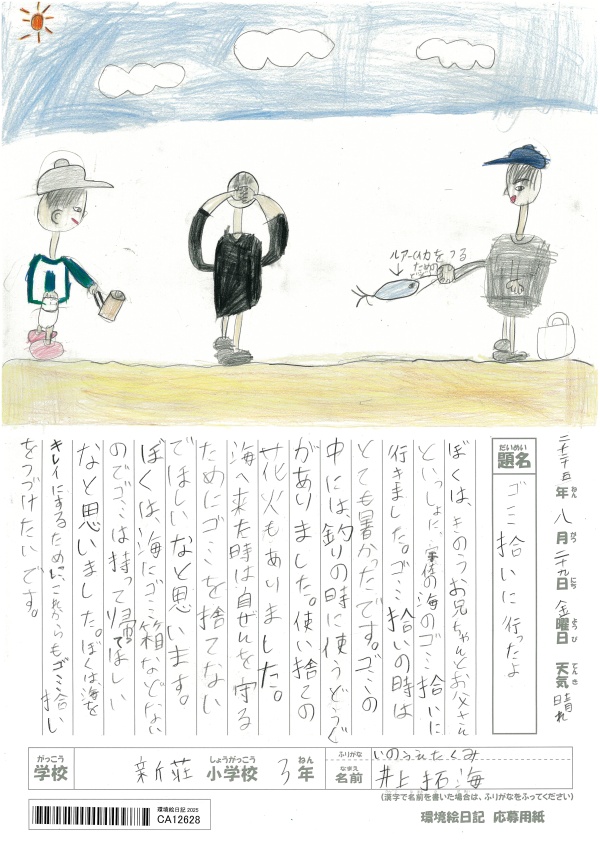 ルアーはイカをつる
ための
二千二十五年八月二十九日金曜日 天気 晴れ
ねん がつ にち ようび てんき
だいめい
題名
ゴミ拾いに行ったよ
ぼくは、きのうお兄ちゃんとお父さん
といっしょに、の海のゴミ拾いに
行きました。ゴミ拾いの時は
とても暑かったです。ゴミの
中には、釣りの時に使うどうぐ
がありました。使い捨ての
花火もありました。
海へ来た時は自ぜんを守る
ためにゴミを捨てない
でほしいなと思います。
ぼくは、海にゴミ箱などない
のでゴミは持って帰てほしい
なと思いました。ぼくは海を
キレイにするために、これからもゴミ拾い
をつづけたいです。
がっこう
学校
新荘
しょうがっこう
小学校
3
ねん
年
ふりがな
いのうえたくみ
なまえ
名前
井上拓海
(漢字で名前を書いた場合は、ふりがなをふってください)
環境絵日記2025
CA12628
環境絵日記 応募用紙